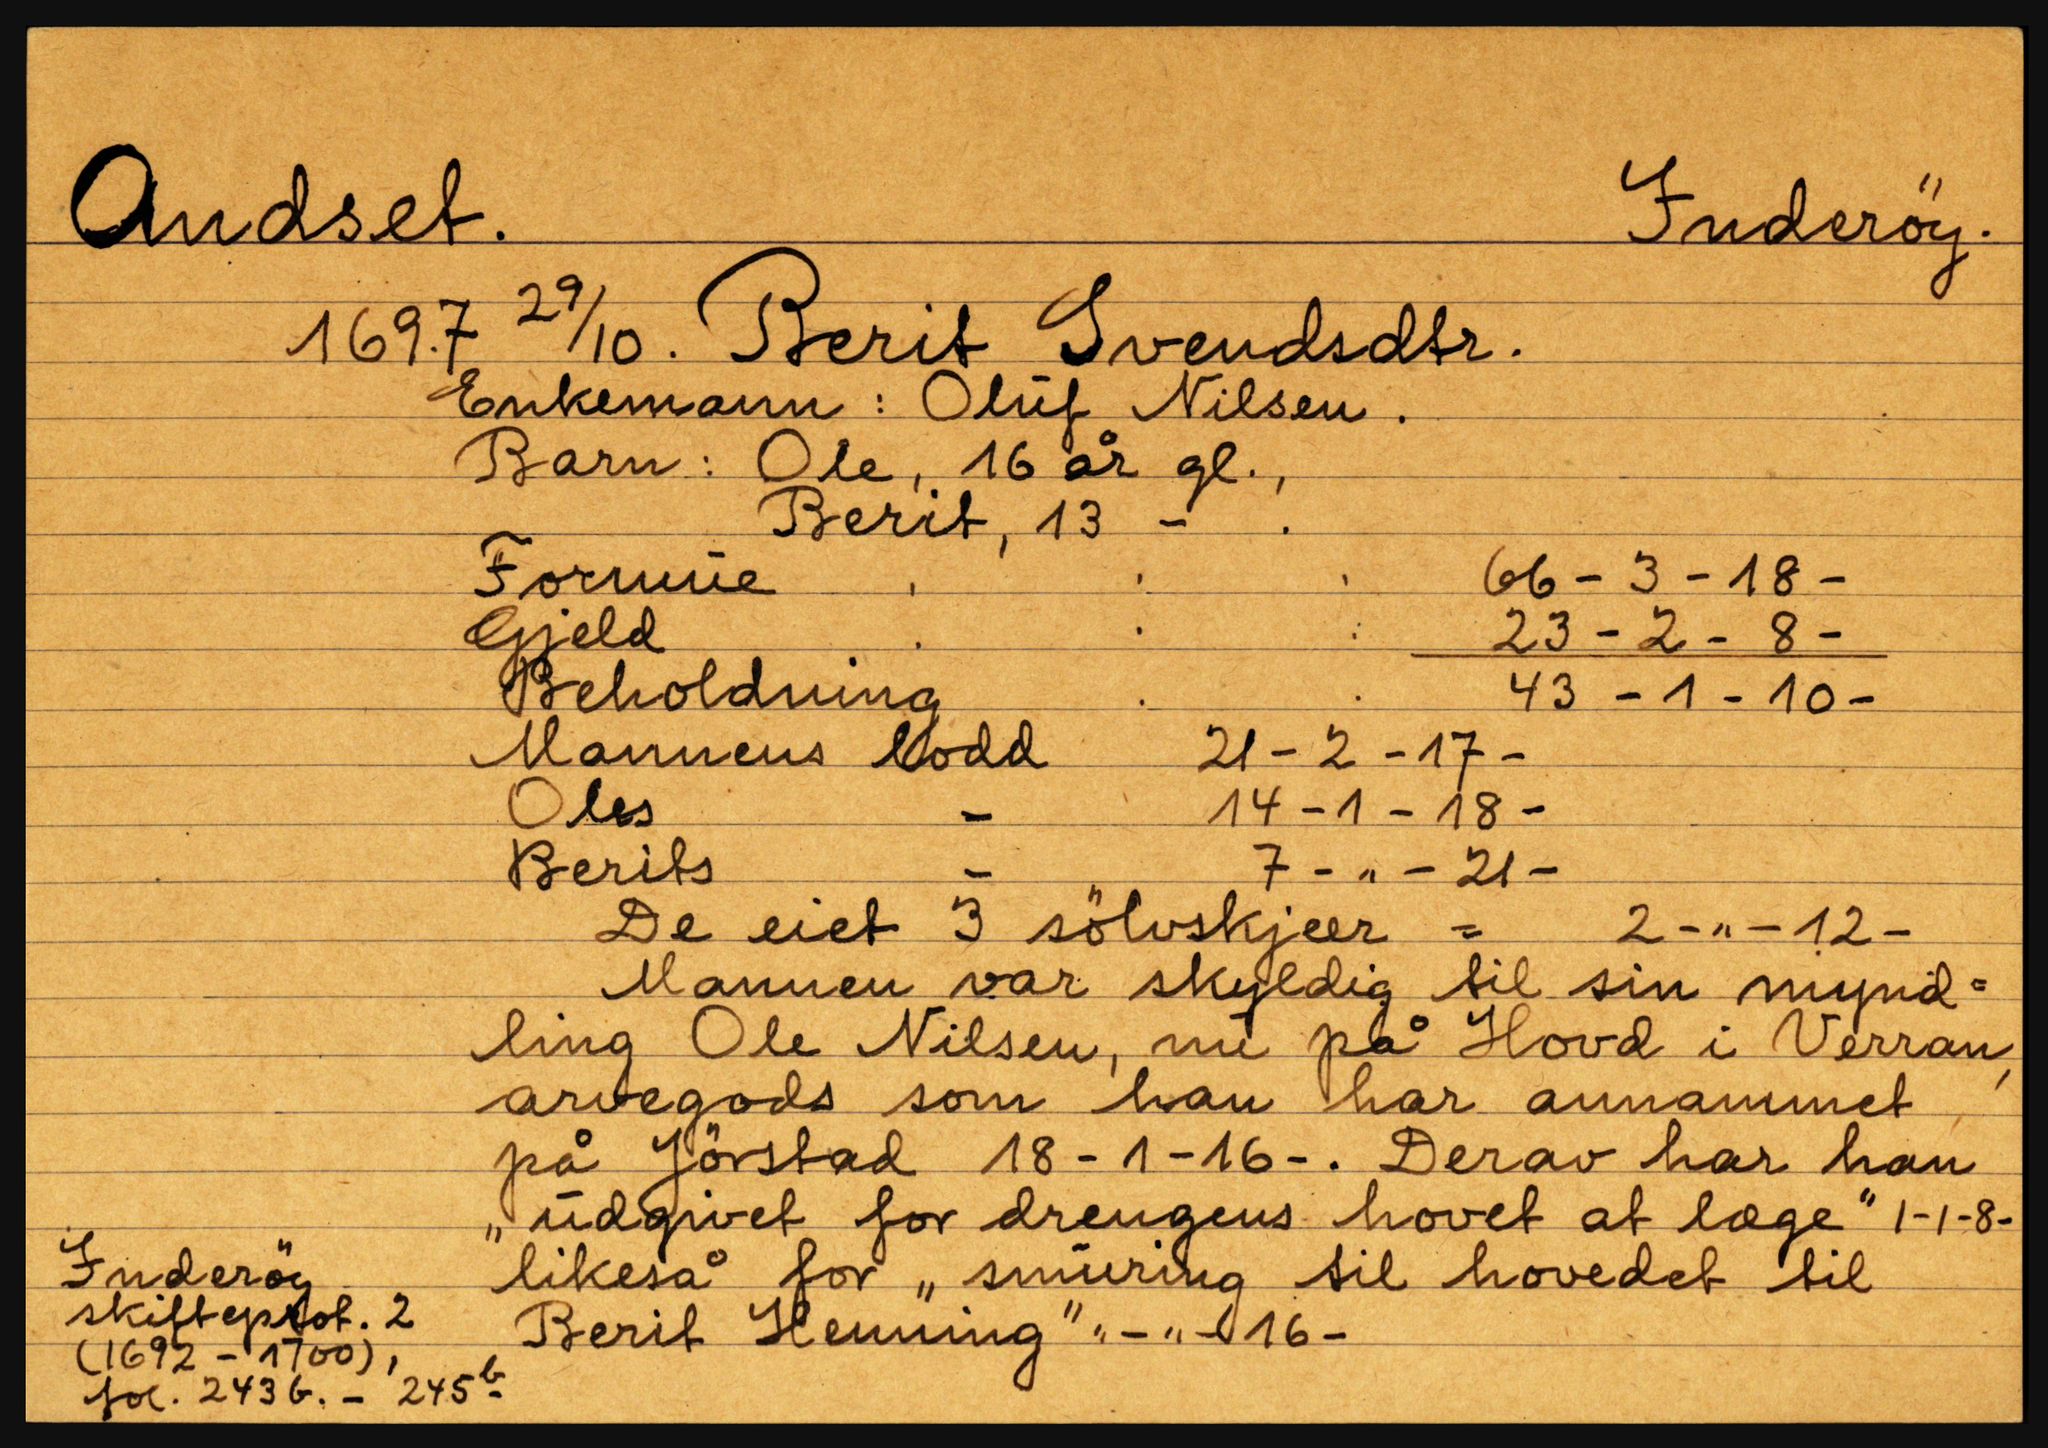 Andset. Inderöy.
1697 29/10. Berit Svendsdtr.
Enkemann: Oluf Nilsen.
Barn: Ole, 16 år gl.,
Berit, 13 - .
Formue . . . 66 - 3 - 18 -
Gjeld . . . 23 - 2 - 8 -
Beholdning . . 43 - 1 - 10 -
Mannens lodd 21 - 2 - 17 -
Oles - 14 - 1 - 18 -
Berits - 7 - " - 21 -
De eiet 3 sölvskjeer = 2 - " - 12 -
Mannen var skyldig til sin mynd=
ling Ole Nilsen, nu på Hovd i Verran,
arvegods som han har annammet
på Jörstad 18 - 1 - 16 -. Derav har han
„udgivet for drengens hovet at læge" 1-1-8-
likeså for „smuring til hovedet til
Berit Henning" " - " - 16 -
Inderöy
skifteprot. 2
(1692 - 1700),
fol. 243 b. - 245 b